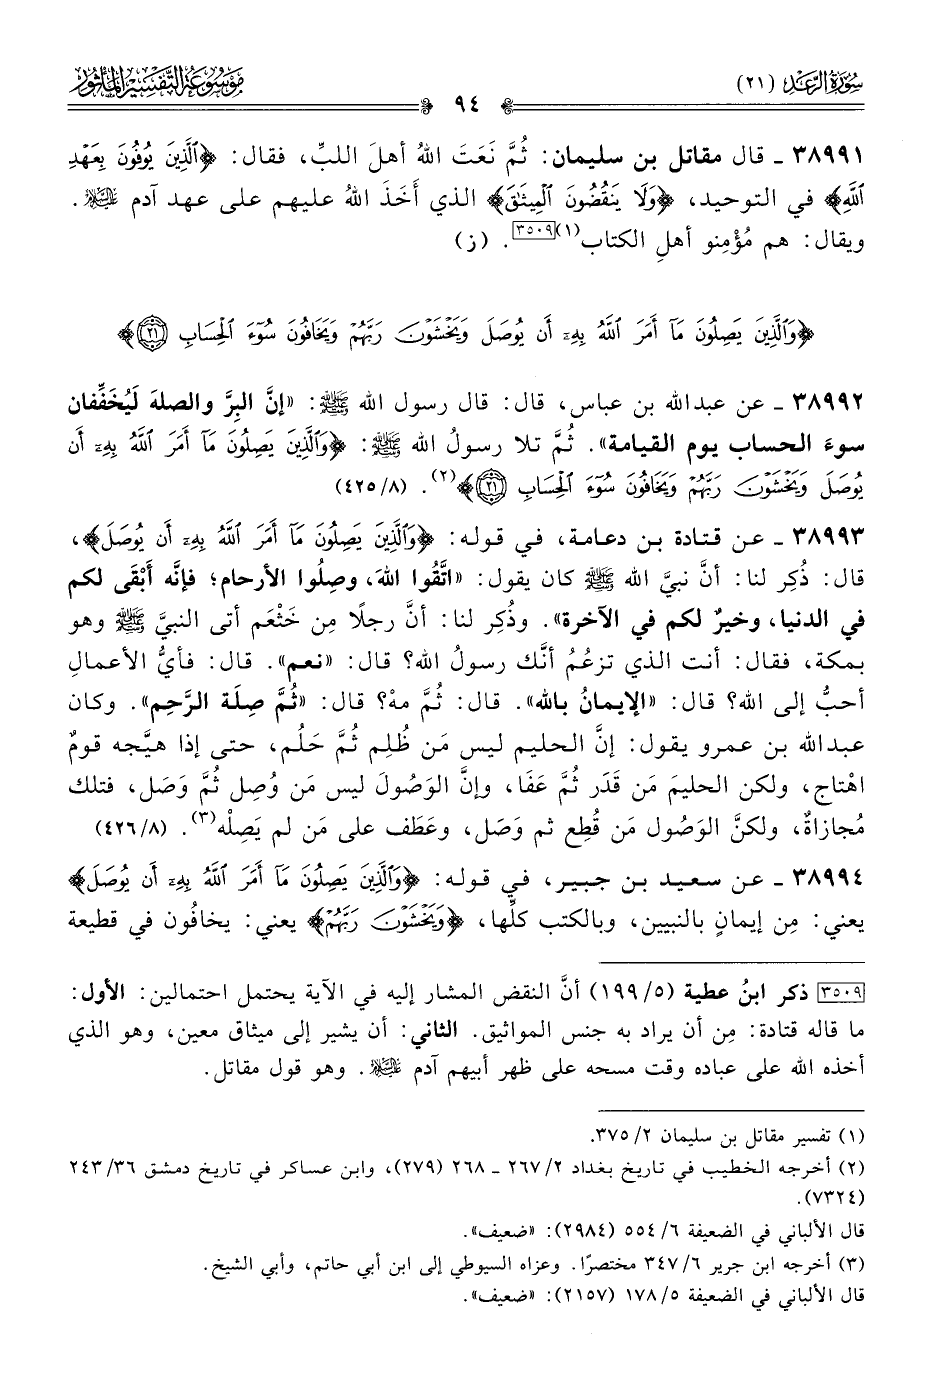 سُورَةُ الرَّعْدِ (٢١)
٩٤
مَوْسُوعَةُ التَّفْسِيرِ المَأْثُورِ
٣٨٩٩١ ـ قال مقاتل بن سليمان: ثُمَّ نَعَتَ اللهُ أهلَ اللبِّ، فقال: ﴿ٱلَّذِينَ يُوفُونَ بِعَهْدِ
ٱللَّهِ﴾ في التوحيد، ﴿وَلَا يَنقُضُونَ ٱلْمِيثَٰقَ﴾ الذي أَخَذَ اللهُ عليهم على عهد آدم عليه السلام.
ويقال: هم مُؤْمِنو أهلِ الكتاب(١)[٣٥٠٩]. (ز)
﴿وَٱلَّذِينَ يَصِلُونَ مَآ أَمَرَ ٱللَّهُ بِهِۦٓ أَن يُوصَلَ وَيَخْشَوْنَ رَبَّهُمْ وَيَخَافُونَ سُوٓءَ ٱلْحِسَابِ ۝٢١﴾
٣٨٩٩٢ ـ عن عبدالله بن عباس، قال: قال رسول الله ﷺ: «إنَّ البِرَّ والصلةَ لَيُخَفِّفان
سوءَ الحساب يوم القيامة». ثُمَّ تلا رسولُ الله ﷺ: ﴿وَٱلَّذِينَ يَصِلُونَ مَآ أَمَرَ ٱللَّهُ بِهِۦٓ أَن
يُوصَلَ وَيَخْشَوْنَ رَبَّهُمْ وَيَخَافُونَ سُوٓءَ ٱلْحِسَابِ ۝٢١﴾(٢). (٤٢٥/٨)
٣٨٩٩٣ ـ عن قتادة بن دعامة، في قوله: ﴿وَٱلَّذِينَ يَصِلُونَ مَآ أَمَرَ ٱللَّهُ بِهِۦٓ أَن يُوصَلَ﴾،
قال: ذُكِر لنا: أنَّ نبيَّ الله ﷺ كان يقول: «اتَّقُوا اللهَ، وصِلُوا الأرحام؛ فإنَّه أَبْقَى لكم
في الدنيا، وخيرٌ لكم في الآخرة». وذُكِر لنا: أنَّ رجلًا مِن خَثْعَم أتى النبيَّ ﷺ وهو
بمكة، فقال: أنت الذي تزعُمُ أنَّك رسولُ الله؟ قال: «نعم». قال: فأيُّ الأعمالِ
أحبُّ إلى الله؟ قال: «الإيمانُ بالله». قال: ثُمَّ مهْ؟ قال: «ثُمَّ صِلَة الرَّحِم». وكان
عبدالله بن عمرو يقول: إنَّ الحليم ليس مَن ظُلِم ثُمَّ حَلُم، حتى إذا هيَّجه قومٌ
اهْتاج، ولكن الحليمَ مَن قَدَر ثُمَّ عَفَا، وإنَّ الوَصُولَ ليس مَن وُصِل ثُمَّ وَصَل، فتلك
مُجازاةٌ، ولكنَّ الوَصُول مَن قُطِع ثم وَصَل، وعَطَف على مَن لم يَصِلْه(٣). (٤٢٦/٨)
٣٨٩٩٤ ـ عن سعيد بن جبير، في قوله: ﴿وَٱلَّذِينَ يَصِلُونَ مَآ أَمَرَ ٱللَّهُ بِهِۦٓ أَن يُوصَلَ﴾
يعني: مِن إيمانٍ بالنبيين، وبالكتب كلِّها، ﴿وَيَخْشَوْنَ رَبَّهُمْ﴾ يعني: يخافُون في قطيعة
[٣٥٠٩] ذكر ابنُ عطية (١٩٩/٥) أنَّ النقض المشار إليه في الآية يحتمل احتمالين: الأول:
ما قاله قتادة: مِن أن يراد به جنس المواثيق. الثاني: أن يشير إلى ميثاق معين، وهو الذي
أخذه الله على عباده وقت مسحه على ظهر أبيهم آدم عليه السلام. وهو قول مقاتل.
(١) تفسير مقاتل بن سليمان ٢/ ٣٧٥.
(٢) أخرجه الخطيب في تاريخ بغداد ٢/ ٢٦٧ ـ ٢٦٨ (٢٧٩)، وابن عساكر في تاريخ دمشق ٣٦/ ٢٤٣
(٧٣٢٤).
قال الألباني في الضعيفة ٦/ ٥٥٤ (٢٩٨٤): «ضعيف».
(٣) أخرجه ابن جرير ٦/ ٣٤٧ مختصرًا. وعزاه السيوطي إلى ابن أبي حاتم، وأبي الشيخ.
قال الألباني في الضعيفة ٥/ ١٧٨ (٢١٥٧): «ضعيف».